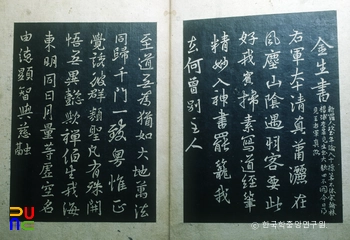 金生書
右軍本清真蕭灑在
風塵山陰遇羽客要此
好鵝賓掃素寫道經筆
精妙入神書罷籠鵝
去何曾別主人
至道無為猶如大地萬法
同歸千門一致粤惟正
覺誘彼群類聖凡有殊開
悟無異懿歟禪伯生我海
東明同日月量等虛空名
由德顯智與慈融
©한국학중앙연구원